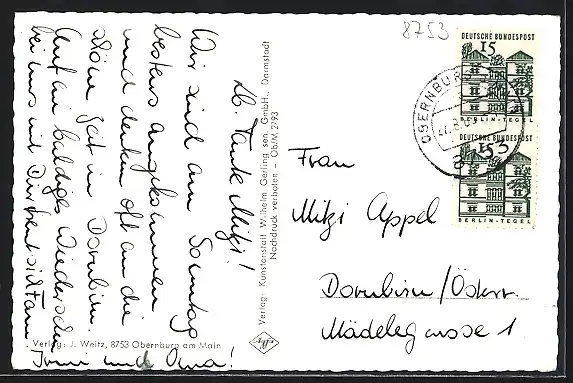 8753
DEUTSCHE BUNDESPOST
15
BERLIN-TEGEL
DEUTSCHE BUNDESPOST
15
BERLIN-TEGEL
OBERNBURG
Lb. Tante Mitzi!
Wir sind am Sonntag
bestens angekommen
und denken oft an die
schöne Zeit in Dornbirn.
Auf ein baldiges Wiedersehen
bei uns mit
Irmi und Oma!
Verlag: Kunstanstalt Wilhelm Gerling sen. GmbH., Darmstadt
Nachdruck verboten - Ob/M. 2/93
Verlag: J. Weitz, 8753 Obernburg am Main
Agfa
Frau
Mitzi Appel
Dornbirn/Österr.
Mädelegasse 1